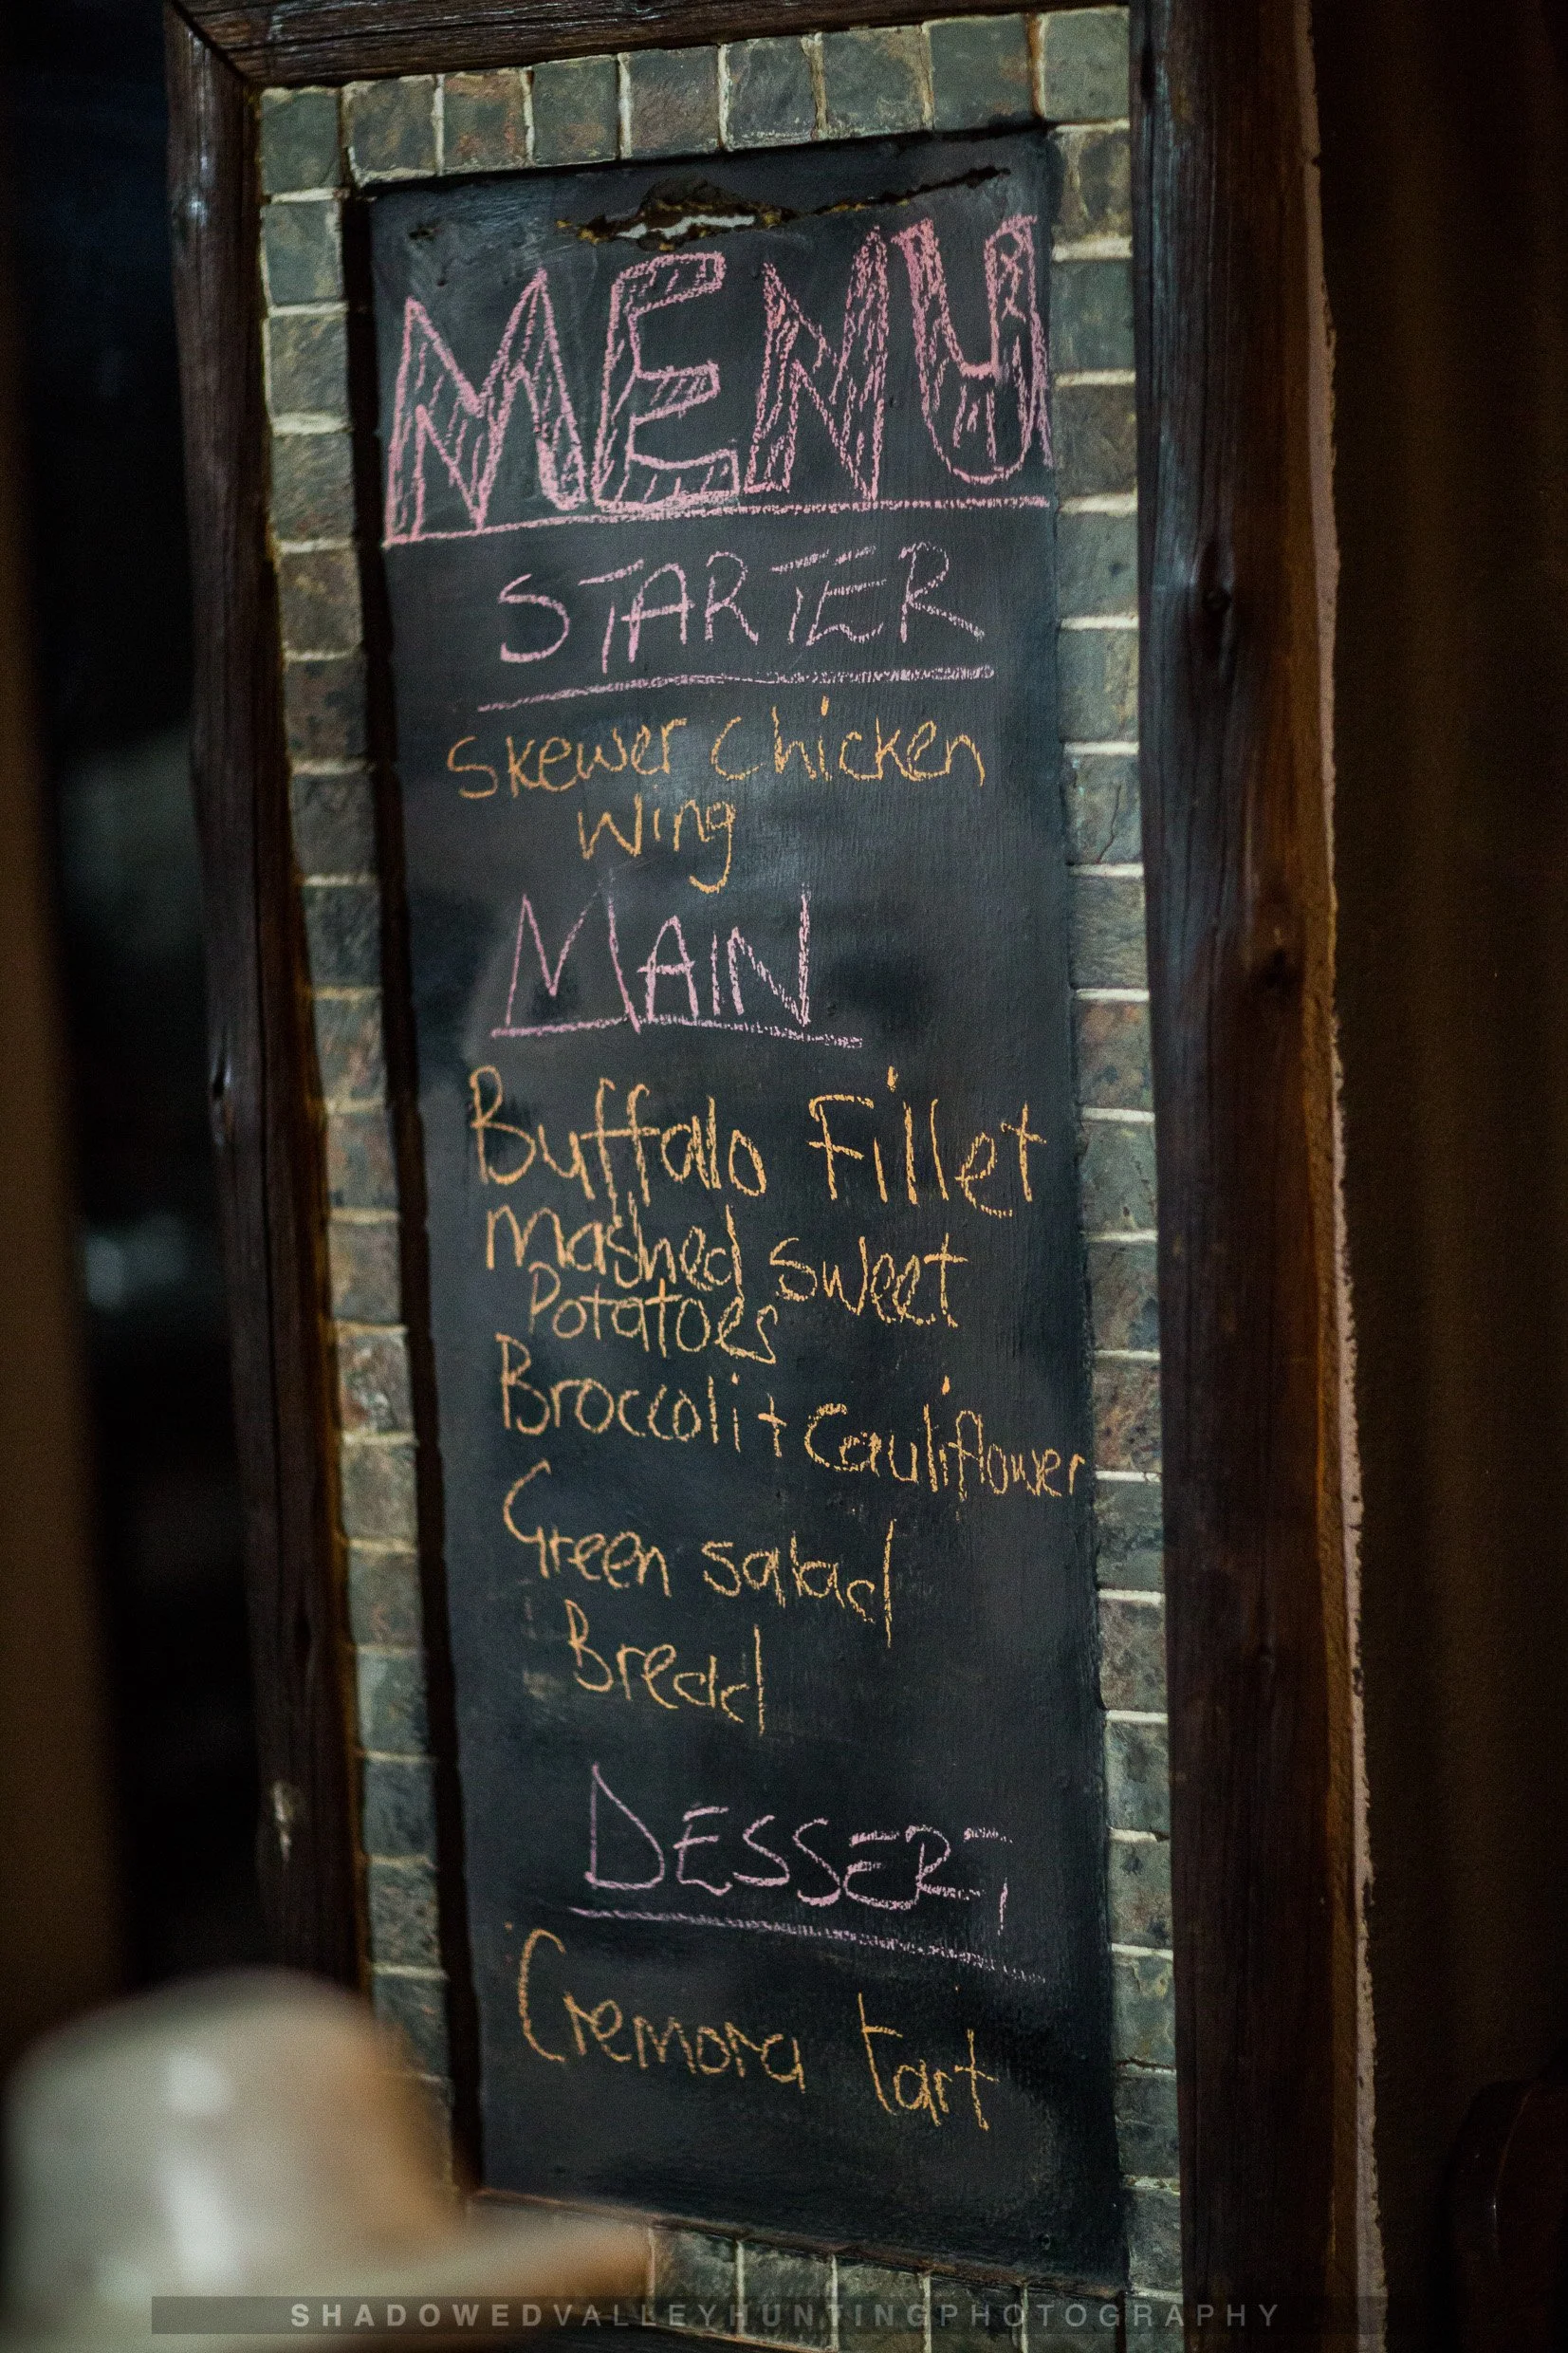 MENU
STARTER
Skewer Chicken
Wing
MAIN
Buffalo Fillet
Mashed Sweet
Potatoes
Broccoli + Cauliflower
Green salad
Bread
DESSERT
Cremora tart
SHADOWEDVALLEYHUNTINGPHOTOGRAPHY